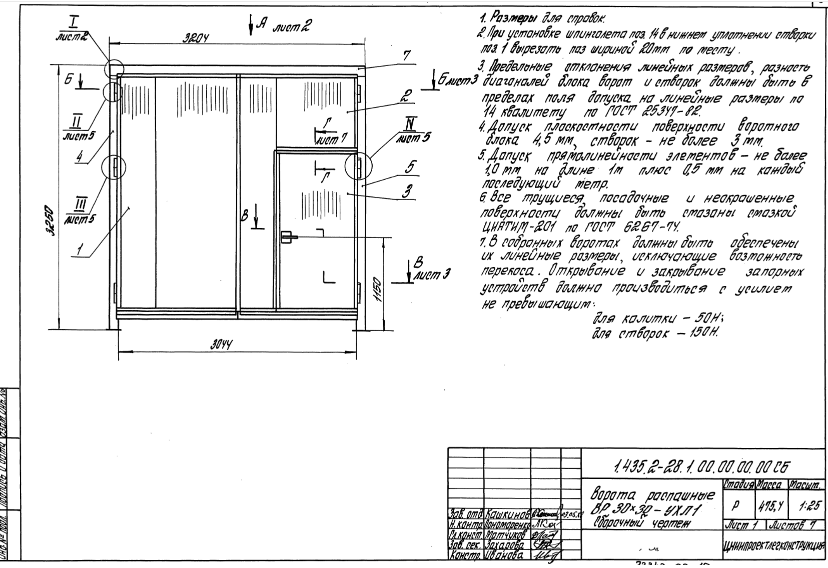 I
лист 2
А лист 2
3204
7
Б
Б лист 3
2
II
лист 5
4
Г
лист 7
IV
лист 5
Г
5
3
III
лист 5
3260
В
1
В
лист 3
1150
3044
1. Размеры для справок.
2. При установке шпингалета поз. 14 в нижнем уплотнении створки
поз. 1 вырезать паз шириной 20мм по месту.
3. Предельные отклонения линейных размеров, разность
диагоналей блока ворот и створок должны быть в
пределах поля допуска на линейные размеры по
14 квалитету по ГОСТ 25347-82.
4. Допуск плоскостности поверхности воротного
блока 4,5 мм, створок - не более 3 мм.
5. Допуск прямолинейности элементов - не более
1,0 мм на длине 1м плюс 0,5 мм на каждый
последующий метр.
6. Все трущиеся, посадочные и неокрашенные
поверхности должны быть смазаны смазкой
ЦИАТИМ-201 по ГОСТ 6267-74.
7. В собранных воротах должны быть обеспечены
их линейные размеры, исключающие возможность
перекоса. Открывание и закрывание запорных
устройств должно производиться с усилием
не превышающим:
для калитки - 50Н;
для створок - 150Н.
1.435.2-28.1.00.00.00.00 СБ
Ворота распашные
ВР 30×30-УХЛ1
Сборочный чертеж
Стадия Масса Масшт.
Р 475,4 1:25
Лист 1 Листов 7
ЦНИИпроектлегконструкция
Зав. отд. Кашкинов
Н. контр. Пономаренко
Гл. конст. Матчиков
Зав. сек. Захарова
Констр. Иванова